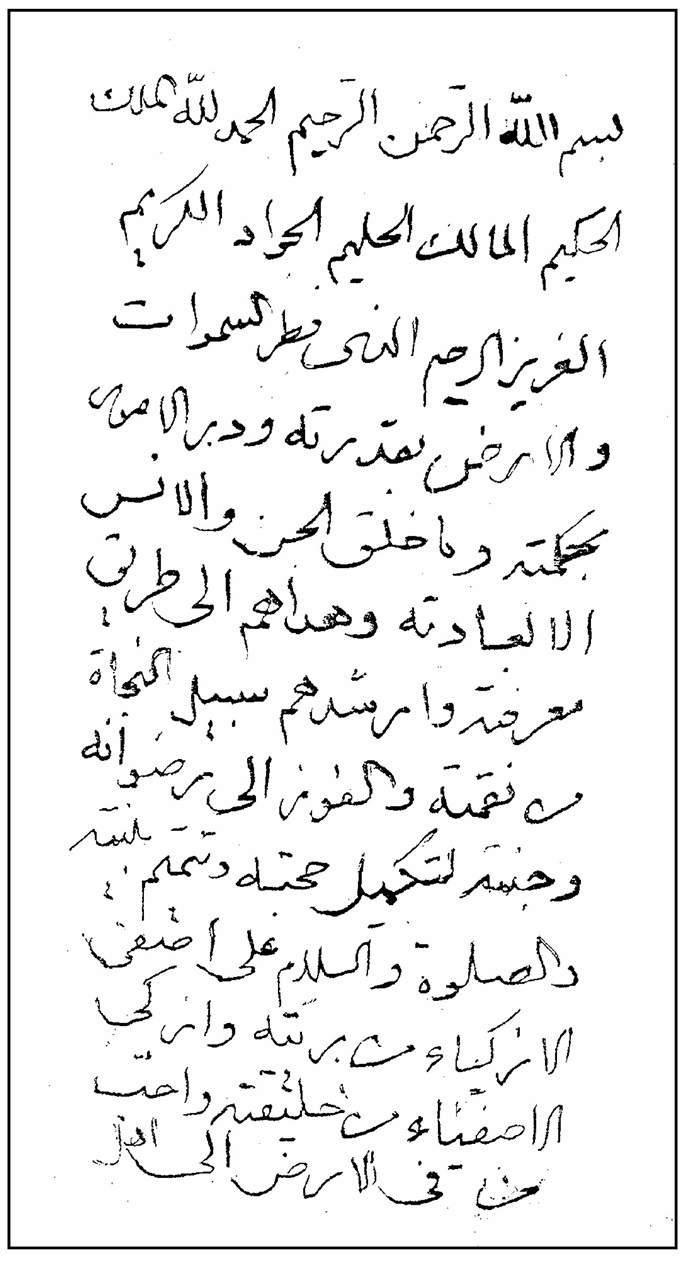 بسم الله الرحمن الرحيم الحمد لله الملك
الحكيم المالك الحليم الجواد الكريم
العزيز الرحيم الذى فطر السموات
والارض بقدرته ودبر الامور
بحكمته وما خلق الجن والانس
الا لعبادته وهداهم الى طريق
معرفته وارشدهم سبيل النجاة
من نقمته والفوز الى رضوانه
وجنته لتكميل حجته وتتميم
والصلوة والسلام على اصفى
الازكياء من بريته وازكى
الاصفياء من خليقته واحب
من فى الارض الى اهل